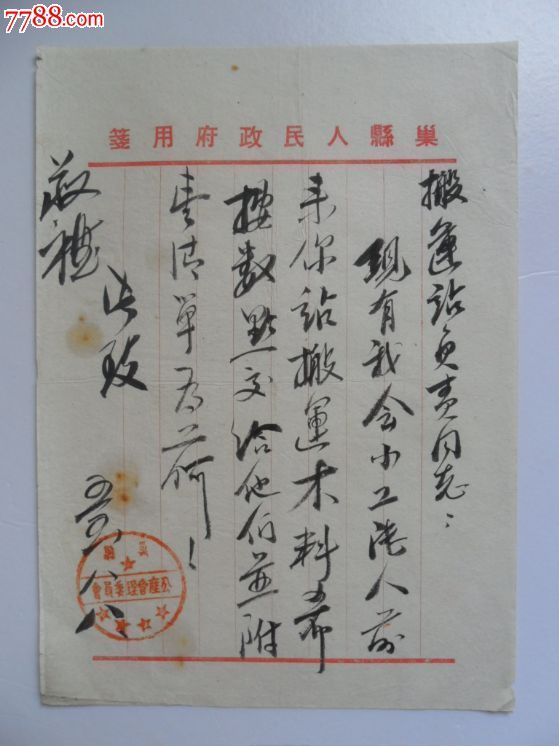 7788.com
中国收藏热线
巢縣人民政府用箋
搬運站負责同志：
現有我会小工人前
来你站搬運木料希
按数點交给他们並附
壹清單為荷！
此致
敬禮
八八
巢縣
公產管理委員會